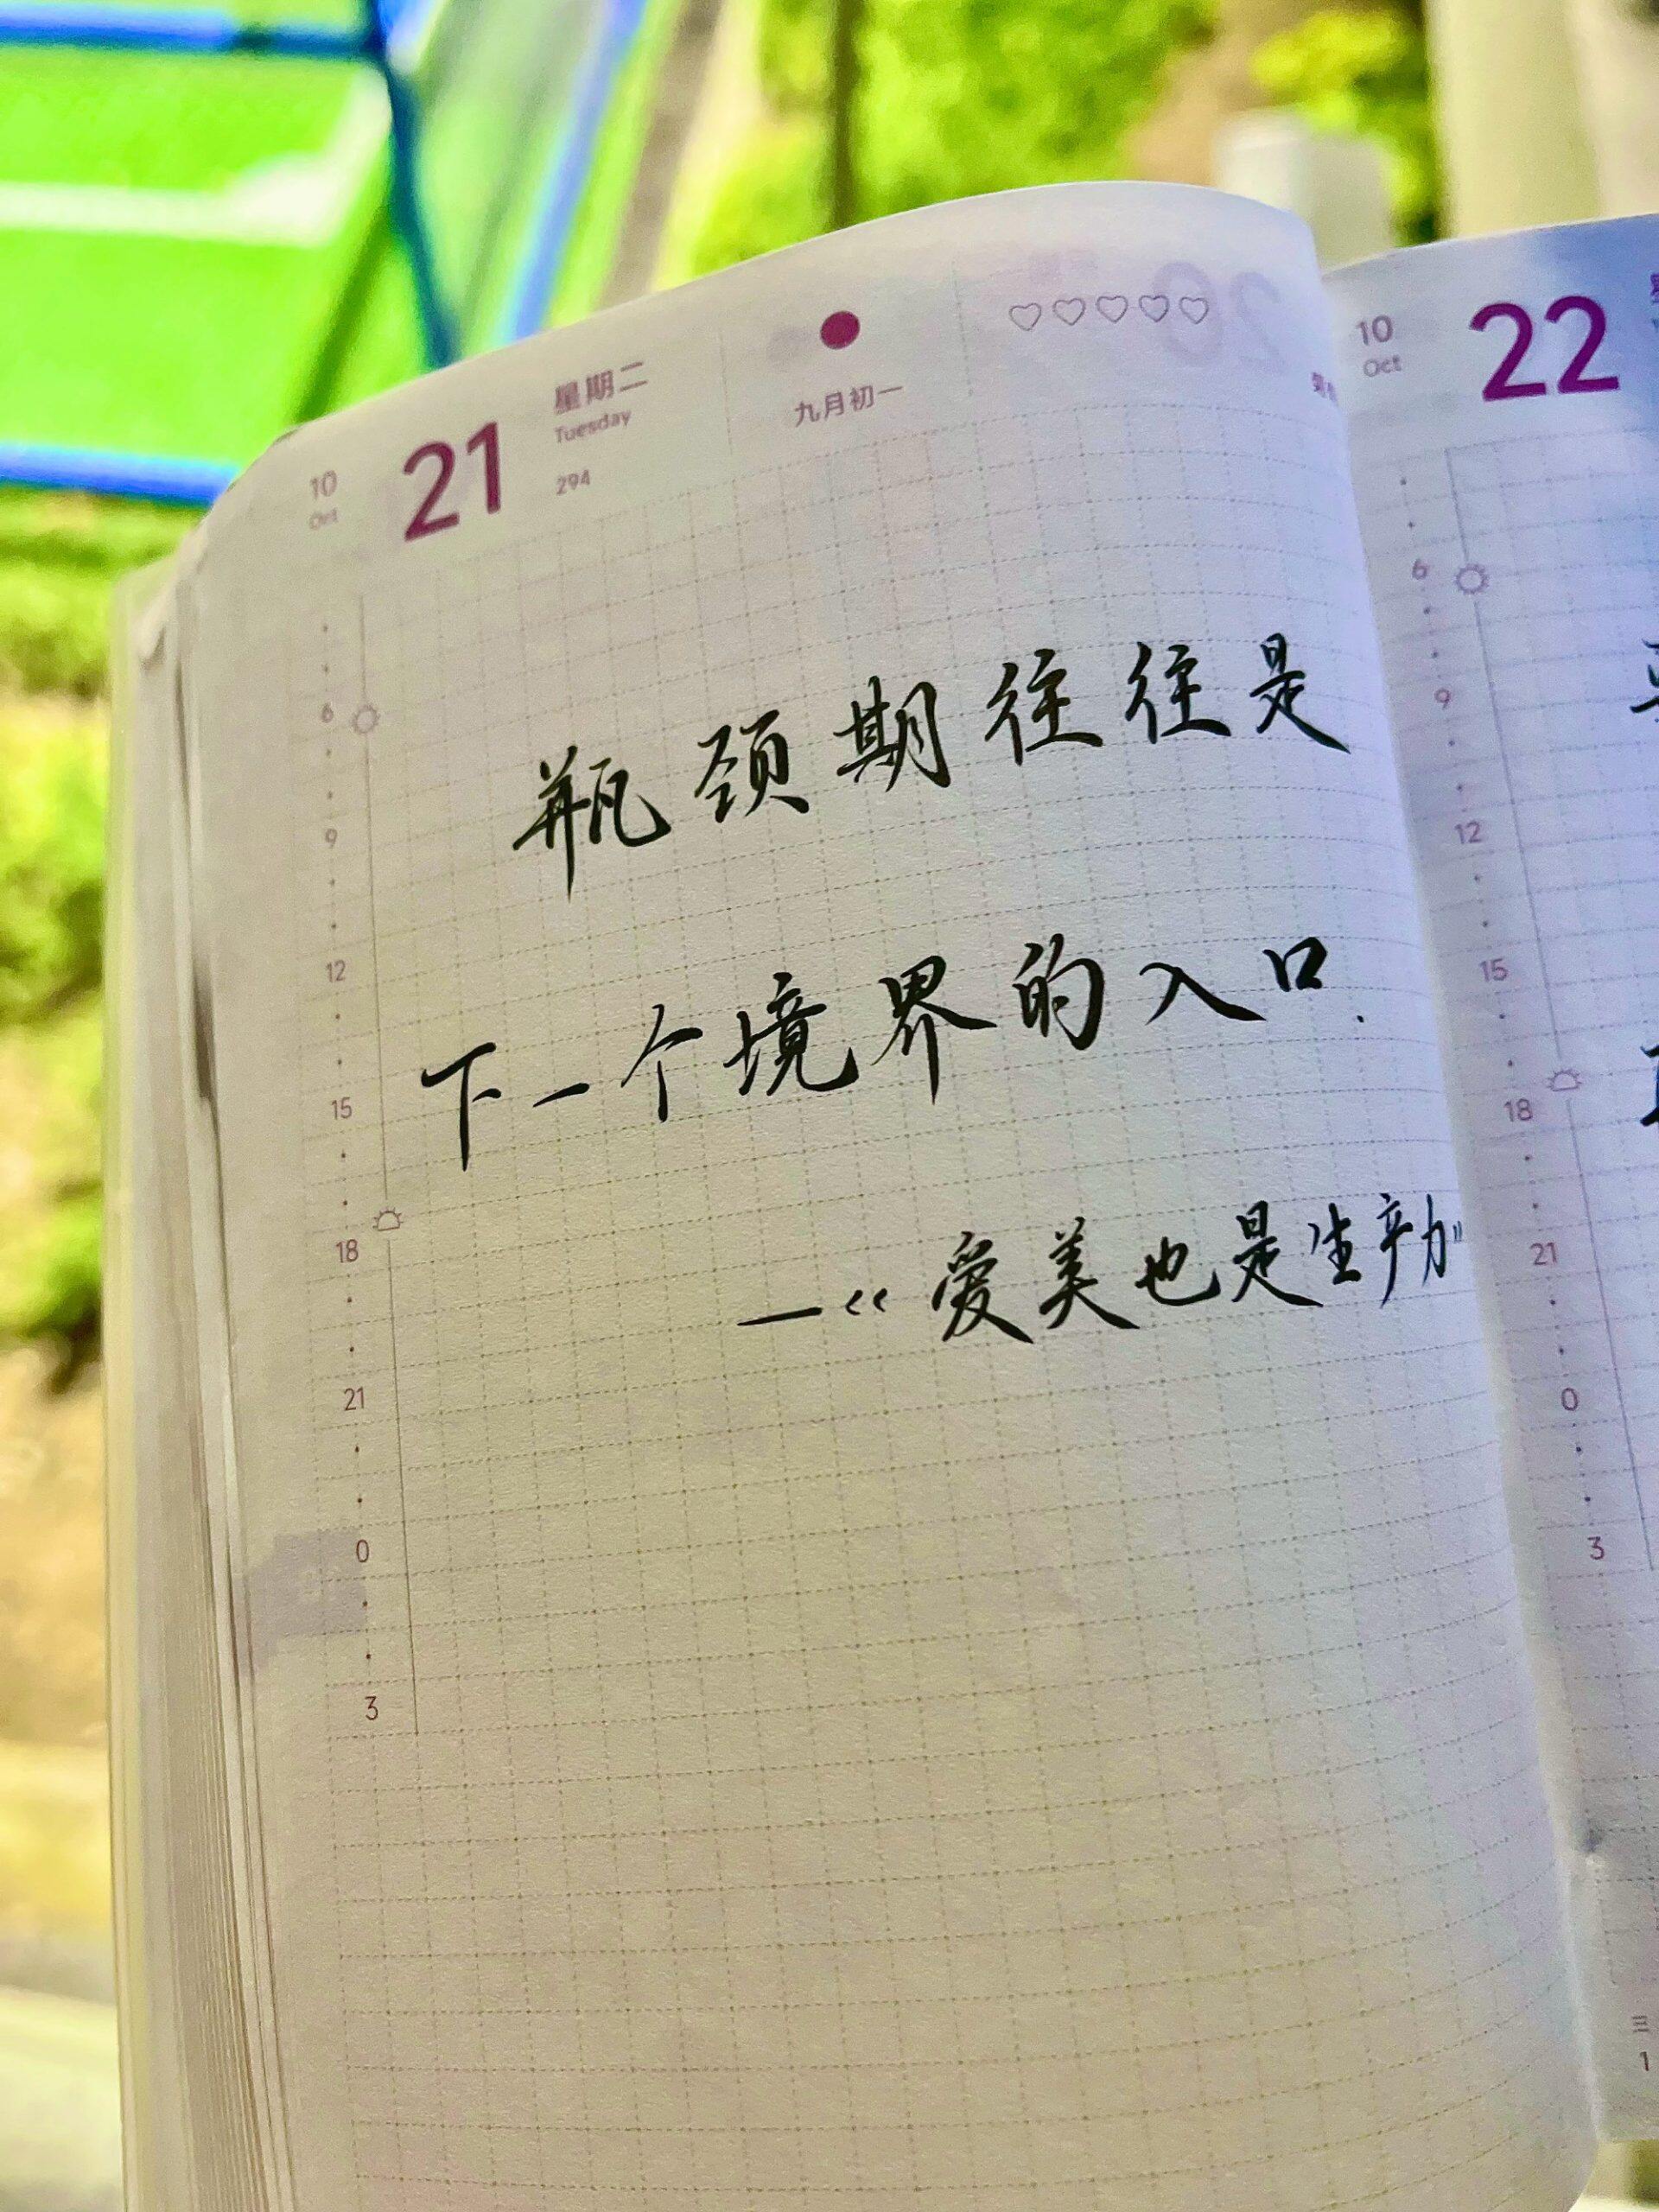 10
Oct
21
星期二
Tuesday
294
九月初一
瓶颈期往往是
下一个境界的入口.
—《爱美也是生产力》
6
9
12
15
18
21
0
3
10
Oct
22
6
9
12
15
18
21
0
3
三
1